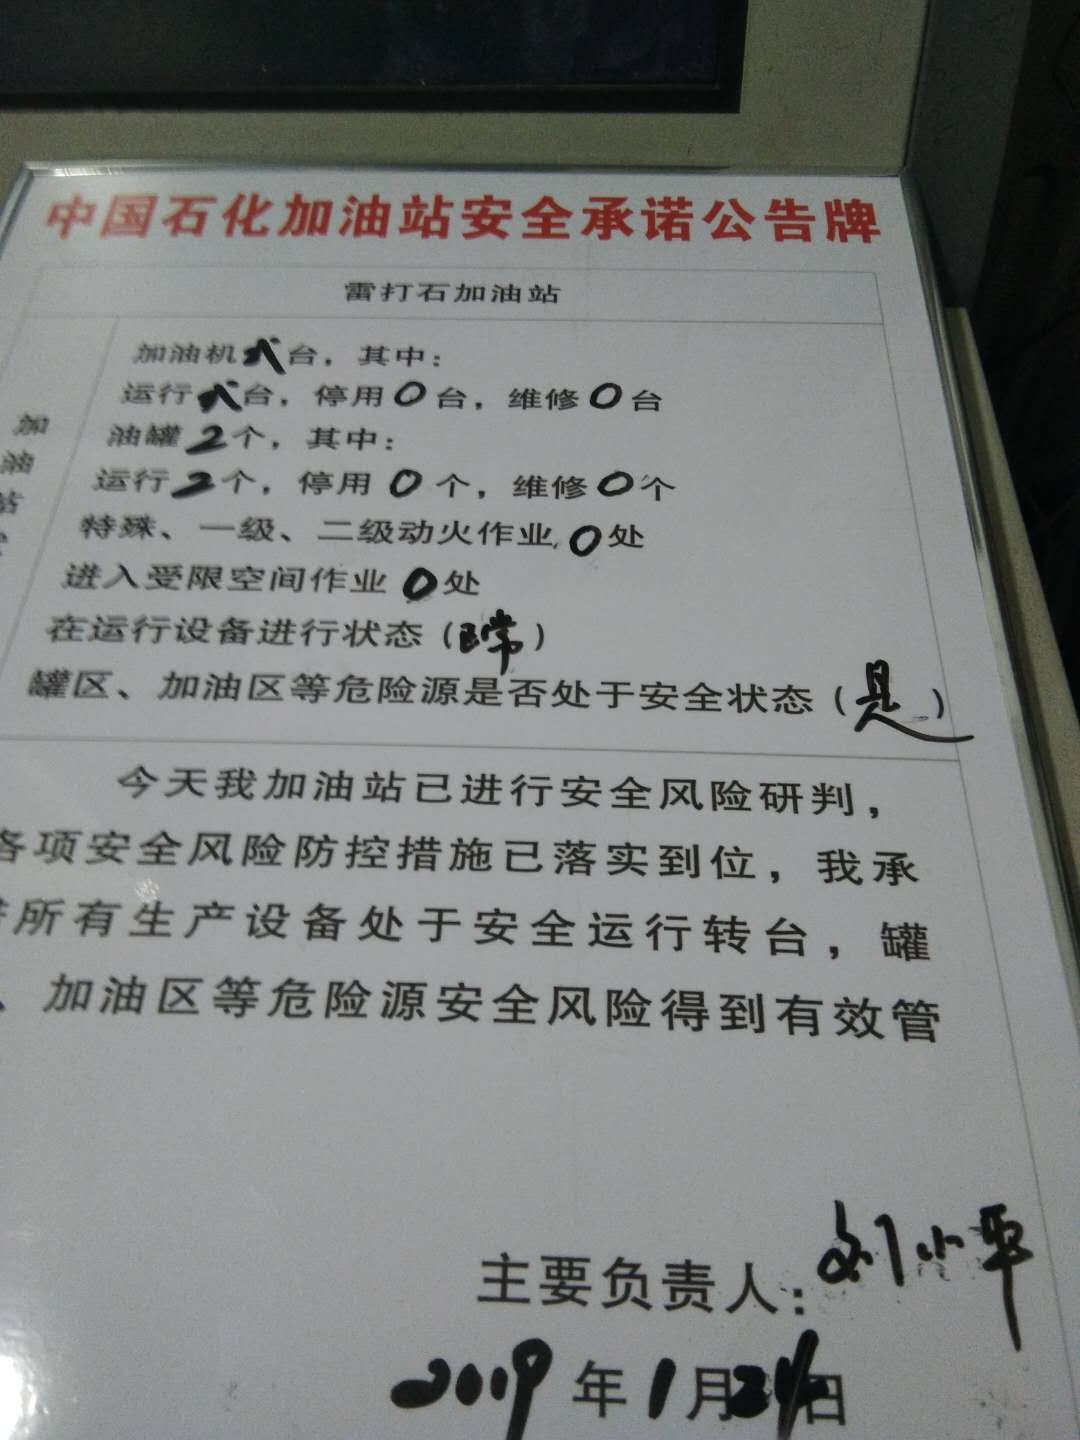 中国石化加油站安全承诺公告牌
雷打石加油站
加油站
加油机弍台，其中：
运行弍台，停用0台，维修0台
油罐2个，其中：
运行2个，停用0个，维修0个
特殊、一级、二级动火作业，0处
进入受限空间作业0处
在运行设备进行状态（正常）
罐区、加油区等危险源是否处于安全状态（是）
今天我加油站已进行安全风险研判，
各项安全风险防控措施已落实到位，我承
诺所有生产设备处于安全运行转台，罐
、加油区等危险源安全风险得到有效管
主要负责人：刘小平
2019年1月24日